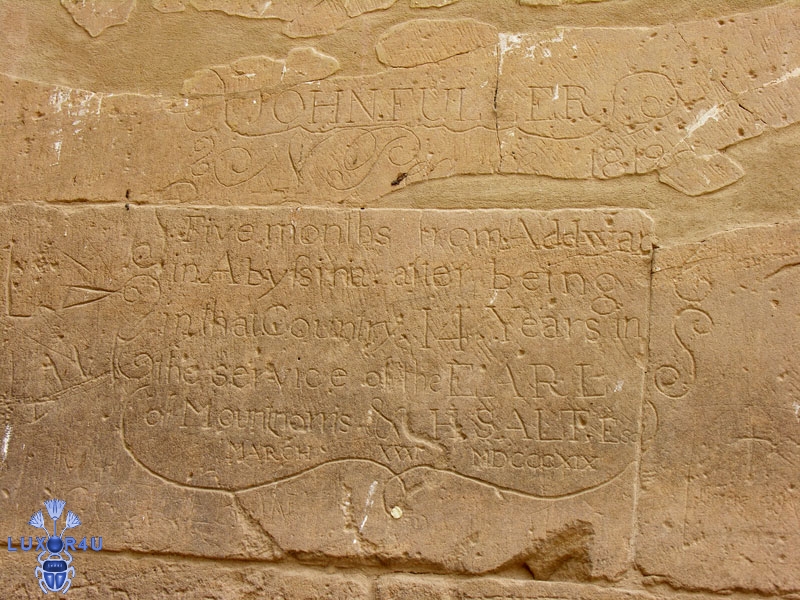 JOHN FULLER
1819
Five months from Addwa
in Abyſsina after being
in that Country 14 Years in
the service of the EARL
of Mountnorris & H. SALT. Esq
MARCH XXVI MDCCCXIX
LUXOR4U